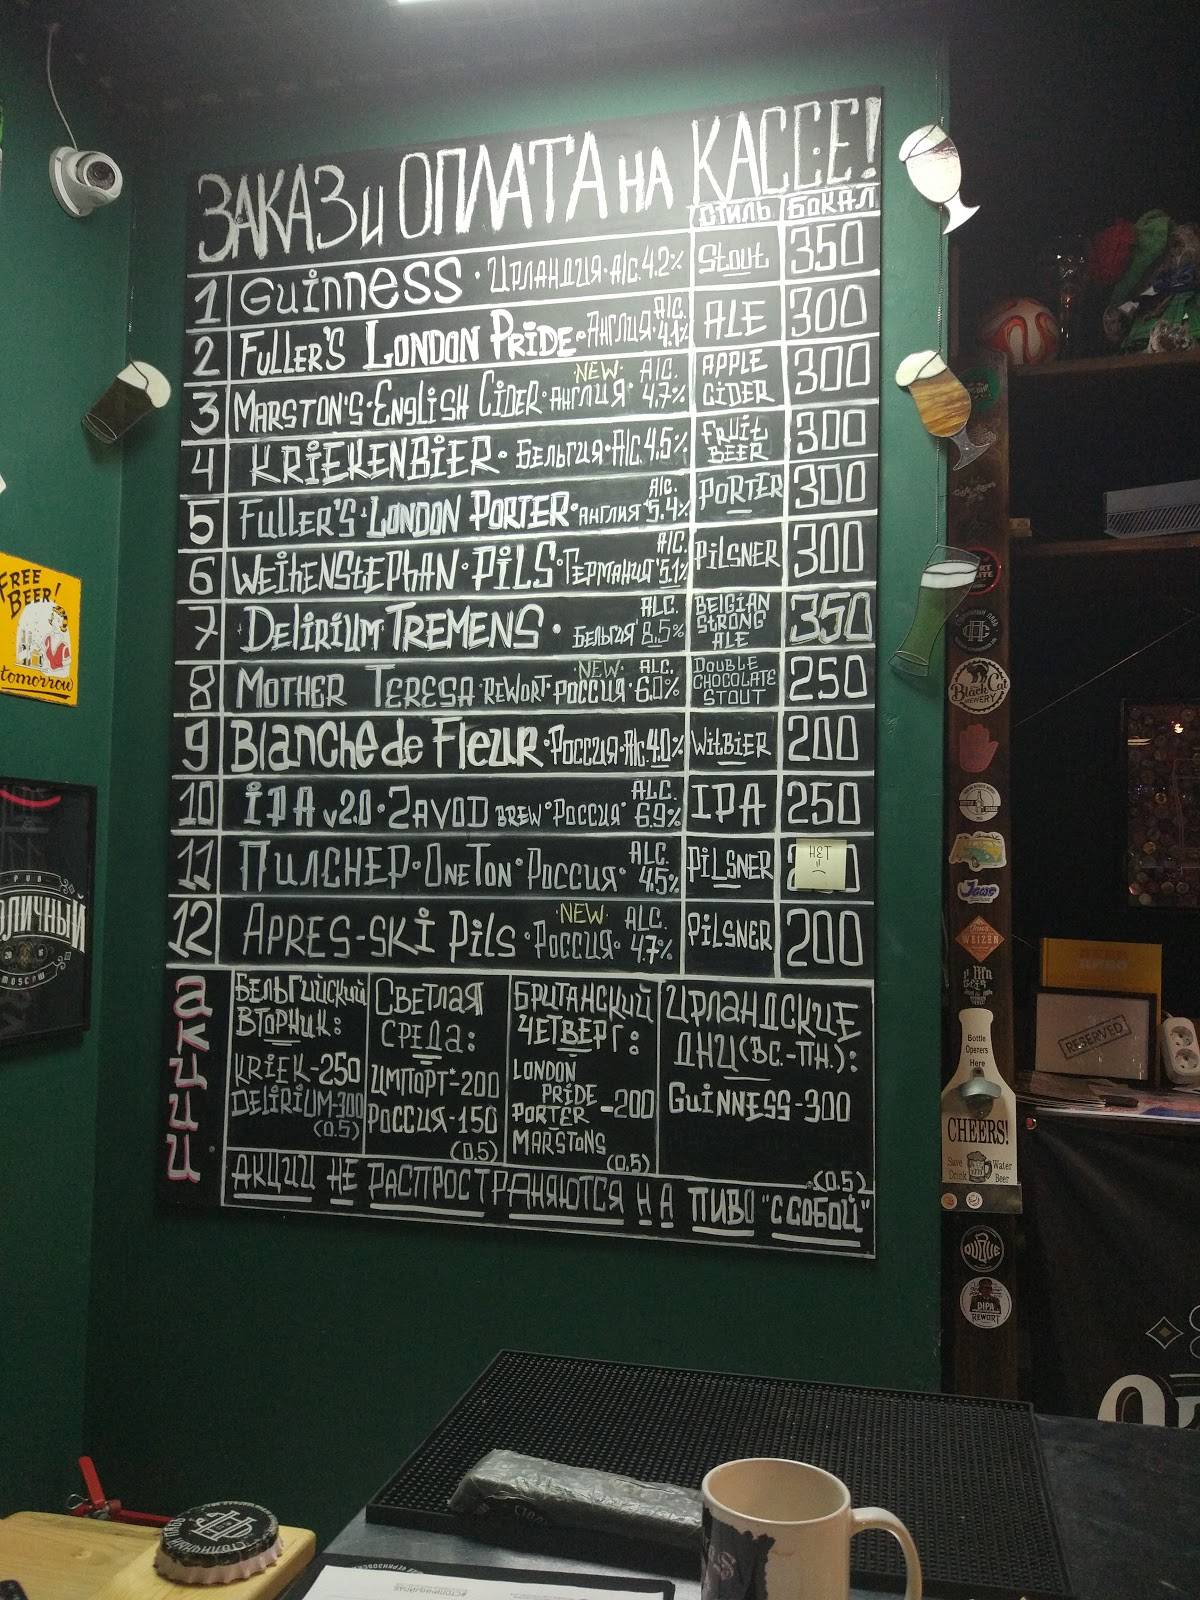 ЗАКАЗ и ОПЛАТА НА КАССЕ!
СТИЛЬ БОКАЛ
1 Guinness · ИРЛАНДИЯ · A/C. 4.2% Stout 350
2 FULLER'S LONDON PRIDE · АНГЛИЯ · A/C. 4.1% ALE 300
3 MARSTON'S · ENGLISH CIDER · АНГЛИЯ · NEW · A/C. 4.7% APPLE CIDER 300
4 KRIEKENBIER · БЕЛЬГИЯ · A/C. 4.5% FRUIT BEER 300
5 FULLER'S · LONDON PORTER · АНГЛИЯ · A/C. 5.4% PORTER 300
6 WEIHENSTEPHAN · PILS · ГЕРМАНИЯ · A/C. 5.1% PILSNER 300
7 DELIRIUM TREMENS · БЕЛЬГИЯ ALC. 8.5% BELGIAN STRONG ALE 350
8 MOTHER TERESA · REWORT · РОССИЯ · NEW · ALC. 6.0% DOUBLE CHOCOLATE STOUT 250
9 Blanche de Fleur · РОССИЯ · A/C. 4.0% WITBIER 200
10 IPA v2.0 · ZAVOD BREW · РОССИЯ ALC. 6.9% IPA 250
11 ПИЛСНЕР · ONE TON · РОССИЯ · ALC. 4.5% PILSNER НЕТ
12 APRES-SKI PILS · РОССИЯ · NEW · ALC. 4.7% PILSNER 200
АКЦИИ
БЕЛЬГИЙСКИЙ
ВТОРНИК:
KRIEK-250
DELIRIUM-300
(0.5)
СВЕТЛАЯ
СРЕДА:
ИМПОРТ*-200
РОССИЯ-150
(0.5)
БРИТАНСКИЙ
ЧЕТВЕРГ:
LONDON
PRIDE
PORTER -200
MARSTONS
(0.5)
ИРЛАНДСКИЕ
ДНИ (ВС.-ПН.):
GUINNESS-300
(0.5)
АКЦИИ НЕ РАСПРОСТРАНЯЮТСЯ НА ПИВО "С СОБОЙ"
FREE
BEER!
tomorrow
PUB
MOSCOW
Black Cat
BREWERY
Jaws
WEIZEN
RESERVED
Bottle
Openers
Here
CHEERS!
Save Water
Drink Beer
DIPA
REWORT